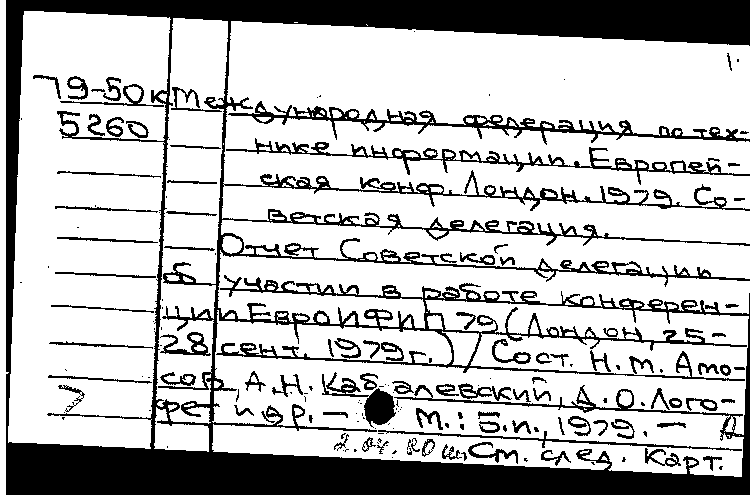 1.
79-50к Международная федерация по тех-
5260 нике информации. Европей-
ская конф. Лондон. 1979. Со-
ветская делегация.
Отчет Советской делегации
об участии в работе конферен-
ции ЕвроИФИП 79 (Лондон, 25-
28 сент. 1979г.) / Сост. Н. М. Амо-
сов, А. Н. Кабалевский, Д. О. Лого-
фет и др. — М.: Б.и., 1979. —
2.04.80 См. след. карт.